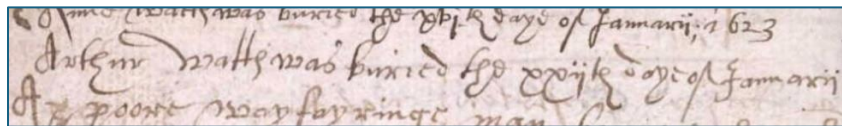 Anne Watth was buried the xvith daye of Januarii, 1623
Arthur Watth was buried the xxiith daye of Januarii
A poore wayfayringe man